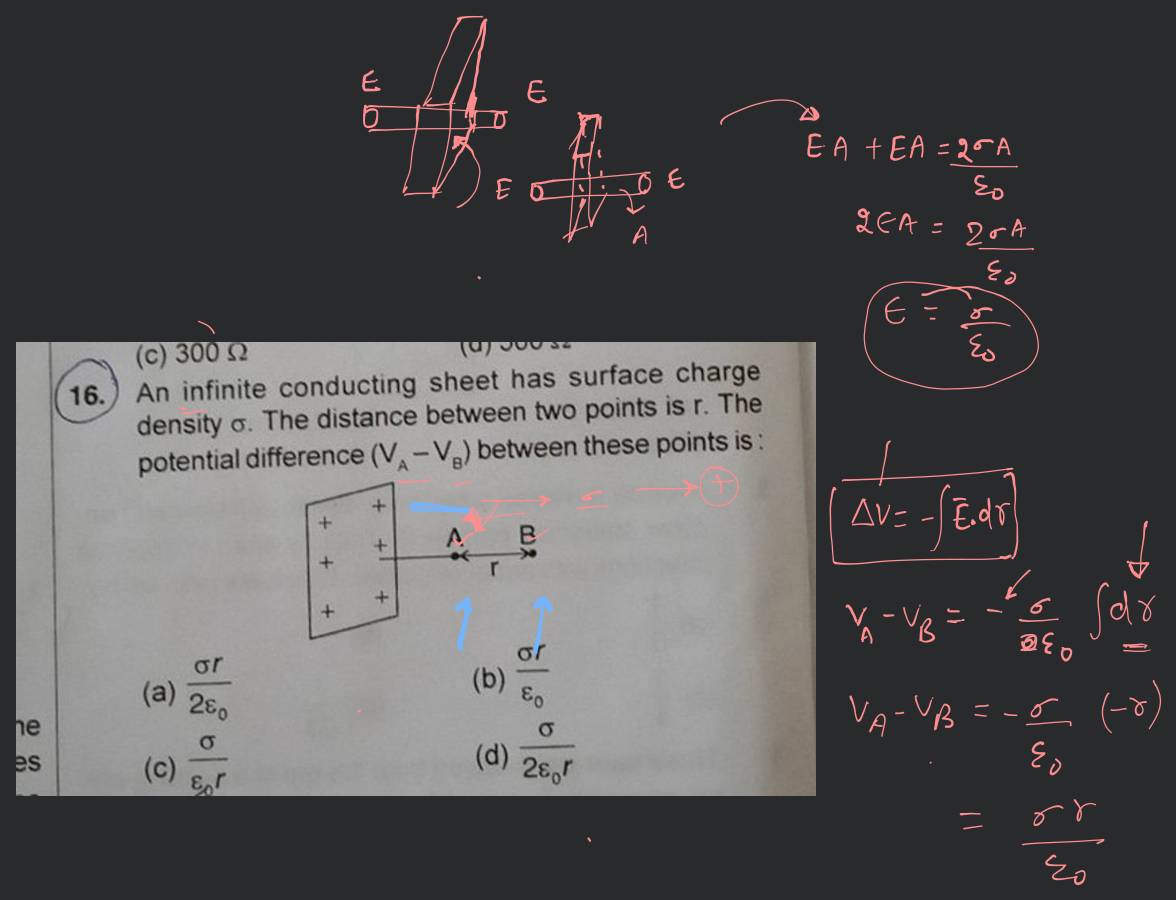 E
E
E
E
A
EA + EA = 2σA/ε₀
2EA = 2σA/ε₀
E = σ/ε₀
(c) 300 Ω
16. An infinite conducting sheet has surface charge
density σ. The distance between two points is r. The
potential difference (V_A – V_B) between these points is :
+ + + + + +
A B
r
σ
+
(a) σr/2ε₀
(b) σr/ε₀
(c) σ/ε₀r
(d) σ/2ε₀r
ne
es
ΔV = -∫E̅.dr
V_A - V_B = - σ/ε₀ ∫dr
V_A - V_B = - σ/ε₀ (-r)
= σr/ε₀